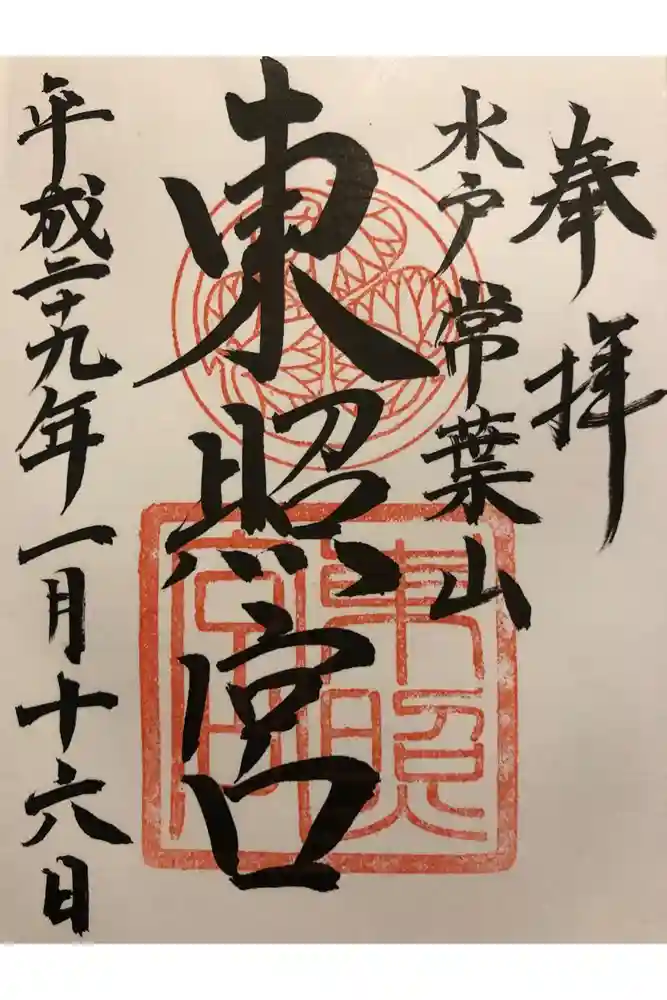 奉拝
水戸常葉山
東照宮
平成二十九年一月十六日
東照
宮印